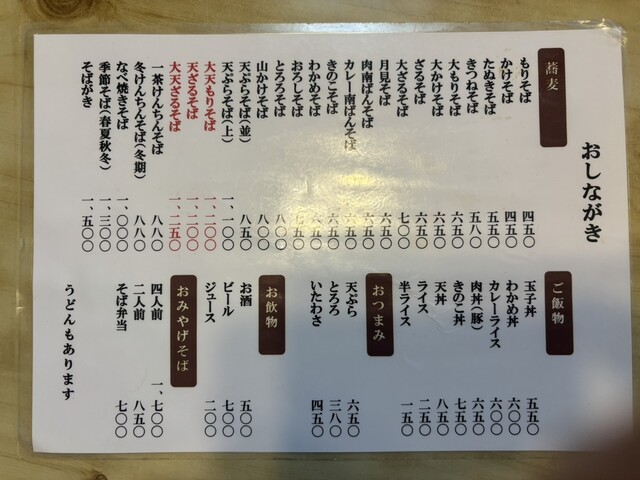 おしながき
蕎麦
もりそば 四五〇
かけそば 四五〇
たぬきそば 五五〇
きつねそば 五八〇
大もりそば 六五〇
大かけそば 六五〇
ざるそば 六五〇
大ざるそば 七〇〇
月見そば 六五〇
肉南ばんそば 六五〇
カレー南ばんそば 六五〇
きのこそば 六五〇
わかめそば 六五〇
おろしそば 七五〇
とろろそば 八〇〇
山かけそば 八〇〇
天ぷらそば(並) 八五〇
天ぷらそば(上) 一、一〇〇
大天もりそば 一、二〇〇
天ざるそば 一、二〇〇
大天ざるそば 一、二五〇
一茶けんちんそば 八八〇
冬けんちんそば(冬期) 八八〇
なべ焼きそば 一、〇〇〇
季節そば(春夏秋冬) 一、三〇〇
そばがき 一、五〇〇
ご飯物
玉子丼 五五〇
わかめ丼 六〇〇
カレーライス 六〇〇
肉丼(豚) 六五〇
きのこ丼 七五〇
天丼 八五〇
ライス 二五〇
半ライス 一五〇
おつまみ
天ぷら 六五〇
とろろ 三八〇
いたわさ 四五〇
お飲物
お酒 五〇〇
ビール 七〇〇
ジュース 二〇〇
おみやげそば
四人前 一、七〇〇
二人前 八五〇
そば弁当 七〇〇
うどんもあります